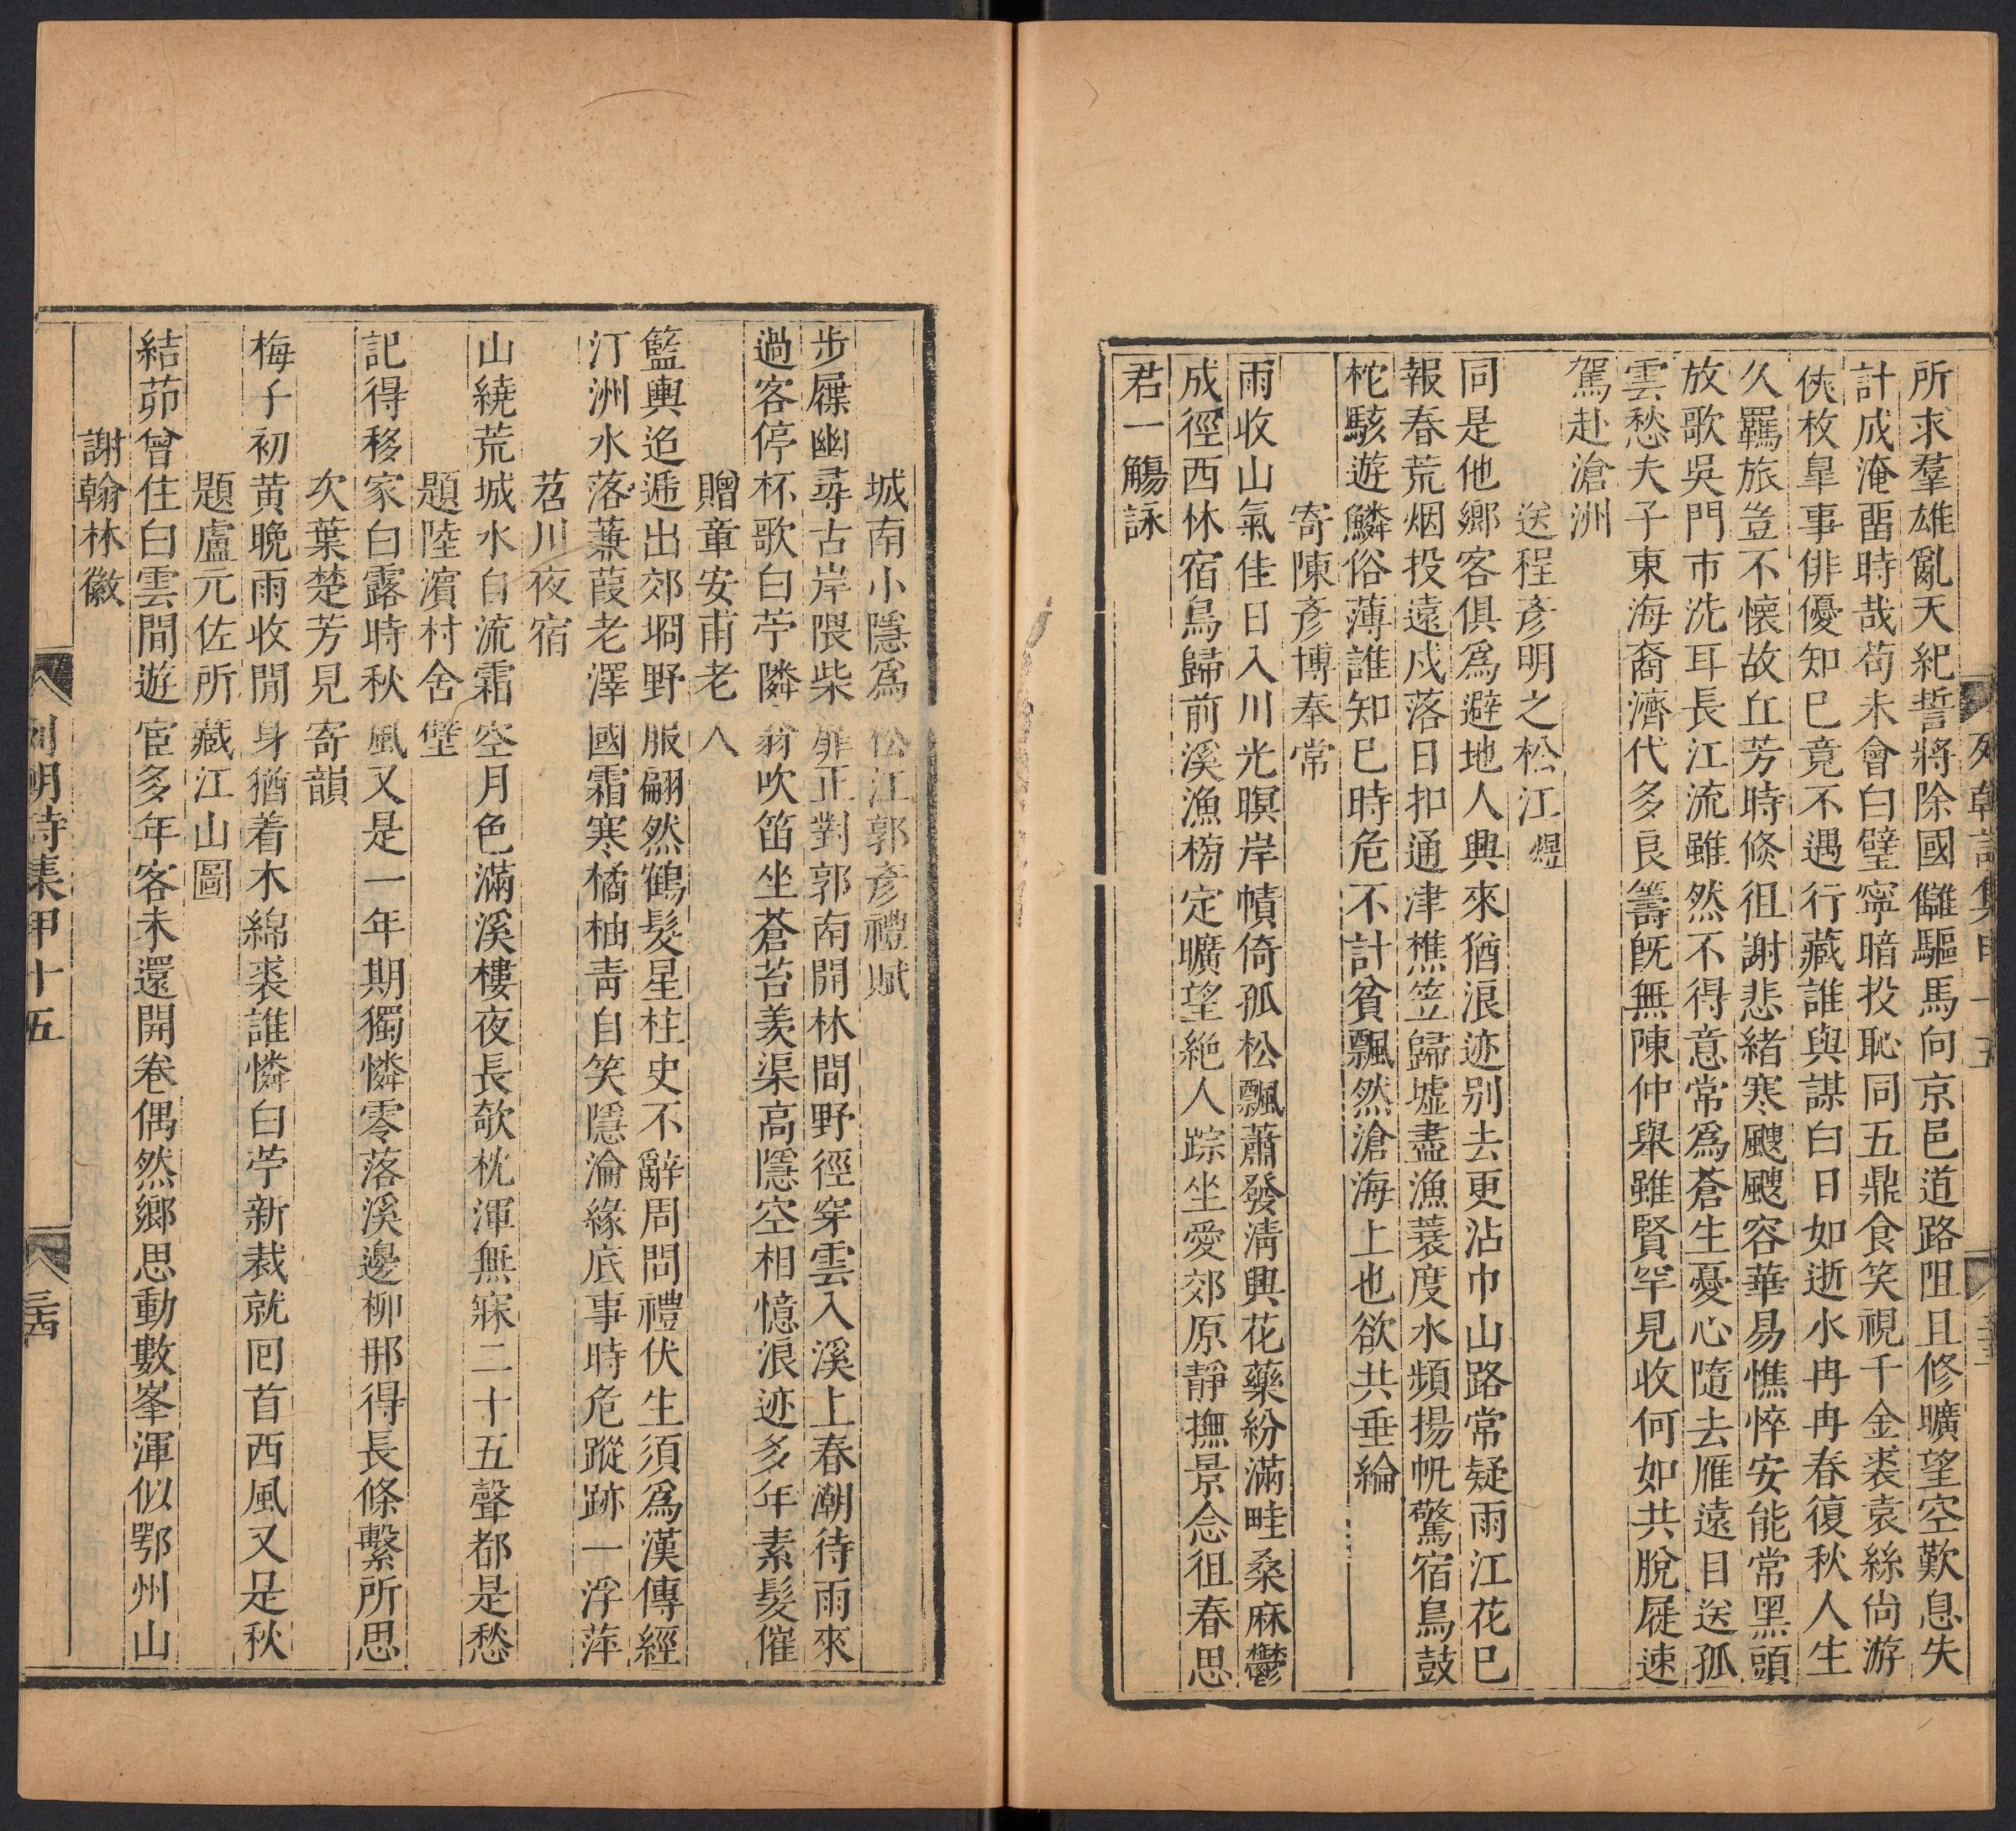 所求羣雄亂天紀誓將除國讎驅馬向京邑道路阻且修曠望空歎息失
計成淹畱時哉苟未會白璧寧暗投恥同五鼎食笑視千金裘袁絲尙游
俠枚臯事俳優知巳竟不遇行藏誰與謀白日如逝水冉冉春復秋人生
久羈旅豈不懷故丘芳時倐徂謝悲緒寒颼颼容華易憔悴安能常黑頭
放歌吳門市洗耳長江流雖然不得意常爲蒼生憂心隨去雁遠目送孤
雲愁夫子東海裔濟代多良籌旣無陳仲舉雖賢罕見收何如共脫屣速
駕赴滄洲
送程彥明之松江煜
同是他鄉客俱爲避地人興來猶浪迹别去更沾巾山路常疑雨江花巳
報春荒烟投遠戍落日扣通津樵笠歸墟盡漁蓑度水頻揚帆驚宿鳥鼓
柁駭遊鱗俗薄誰知巳時危不計貧飄然滄海上也欲共垂綸
寄陳彥博奉常
雨收山氣佳日入川光暝岸幘倚孤松飄蕭發淸興花藥紛滿畦桑麻鬱
成徑西林宿鳥歸前溪漁榜定曠望絶人踪坐愛郊原靜撫景念徂春思
君一觴詠
城南小隱爲松江郭彥禮賦
步屧幽尋古岸隈柴扉正對郭南開林間野徑穿雲入溪上春潮待雨來
過客停杯歌白苧隣翁吹笛坐蒼苔羨渠高隱空相憶浪迹多年素髮催
贈章安甫老人
籃輿迨遞出郊坰野服翩然鶴髮星柱史不辭周問禮伏生須爲漢傳經
汀洲水落蒹葭老澤國霜寒橘柚靑自笑隱淪緣底事時危蹤跡一浮萍
苕川夜宿
山繞荒城水自流霜空月色滿溪樓夜長欹枕渾無寐二十五聲都是愁
題陸濵村舍壁
記得移家白露時秋風又是一年期獨憐零落溪邊柳那得長條繫所思
次葉楚芳見寄韻
梅子初黃晚雨收閒身猶着木綿裘誰憐白苧新裁就囘首西風又是秋
題盧元佐所藏江山圖
結茆曾住白雲間遊宦多年客未還開卷偶然鄉思動數峯渾似鄂州山
謝翰林徽
列朝詩集甲十五